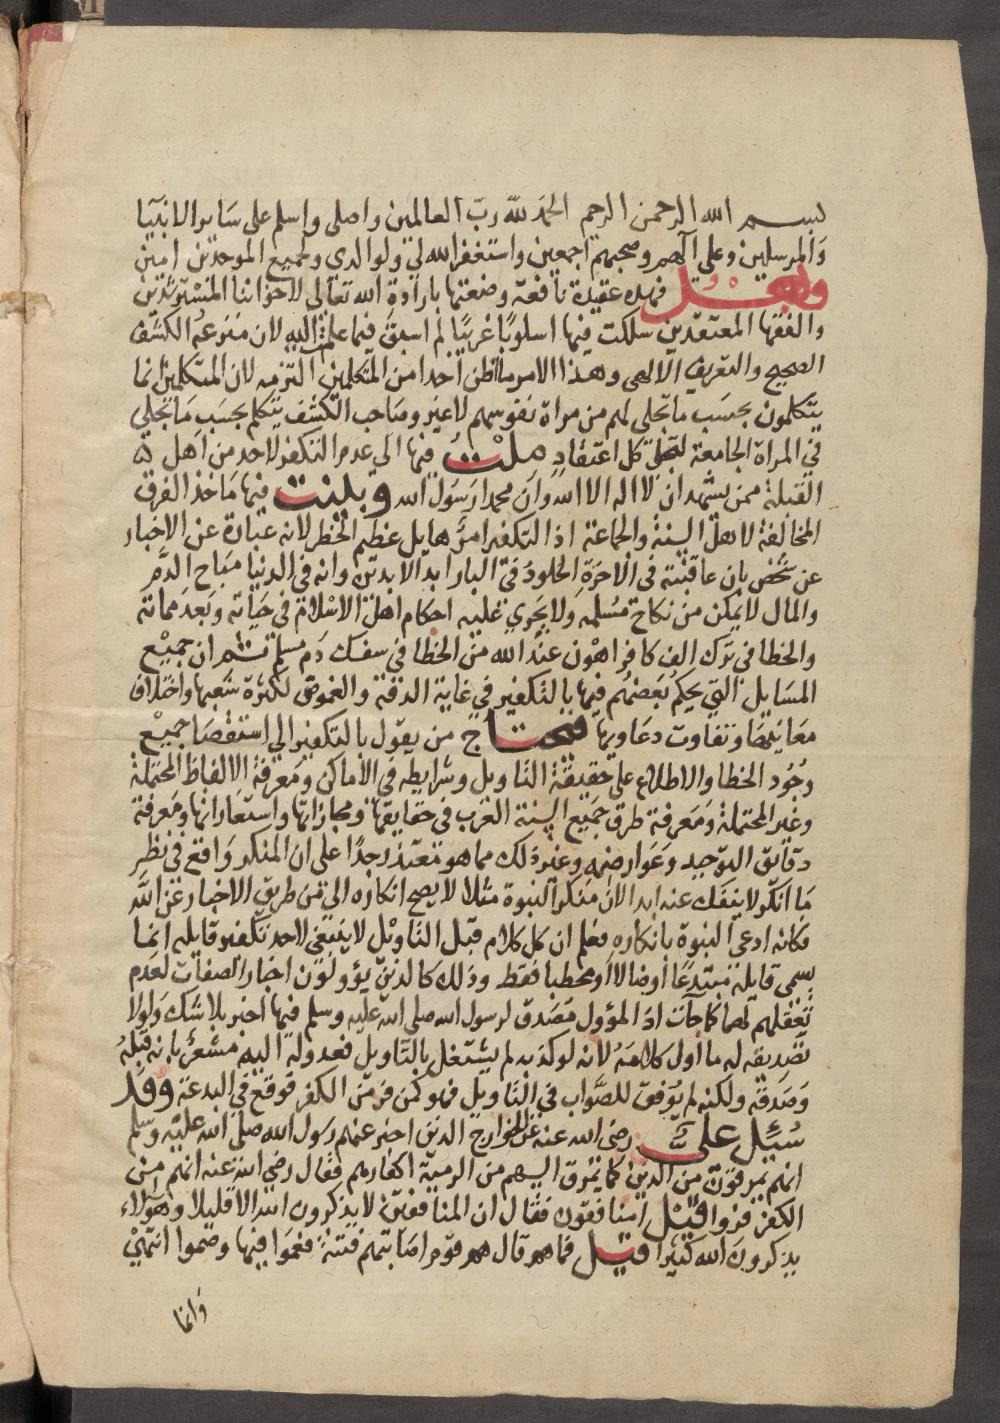 بسم الله الرحمن الرحيم الحمد لله ربّ العالمين واصلى واسلم على ساير الانبيا
والمرسلين وعلى آلهم وصحبهم اجمعين واستغفر الله لي ولوالدي ولجميع الموحدين امين
وبعد فهذه عقيدة نافعة وضعتها بارادة الله تعالى لاخواننا المسترشدين
والفقها المعتقدين سلكت فيها اسلوبا غريبا لم اسبق فيما علمت اليه لان منزعه الكشف
الصحيح والتعريف الالهى وهذا الامر ما اظن احدا من المتكلمين التزمه لان المتكلمين انما
يتكلمون بحسب ما تجلى لهم من مراة نفوسهم لا غير وصاحب الكشف يتكلم بحسب ما تجلي
في المراة الجامعة لتجلى كل اعتقاد ملت فيها الى عدم التكفير لاحد من اهل
القبلة ممن يشهد ان لا اله الا الله وان محمدا رسول الله وبينت فيها ماخذ الفرق
المخالفة لاهل السنة والجماعة اذ التكفير امر هايل عظيم الخطر لانه عبارة عن الاخبار
عن شخص بان عاقبته في الاخرة الخلود في النار ابد الابدين وانه في الدنيا مباح الدم
والمال لا يمكن من نكاح مسلمه ولا يجري عليه احكام اهل الاسلام في حياته وبعد مماته
والخطا في ترك الف كافر اهون عند الله من الخطا في سفك دم مسلم ثم ان جميع
المسايل التي يحكم بعضهم فيها بالتكفير في غاية الدقة والغموض لكثرة شعبها واختلاف
معانيها وتفاوت دعاويها فيحتاج من يقول بالتكفير الي استقصا جميع
وجود الخطا والاطلاع على حقيقة التاويل وشرايطه في الاماكن ومعرفة الالفاظ المحتملة
وغير المحتملة ومعرفة طرق جميع السنة العرب في حقايقها ومجازاتها واستعاراتها ومعرفة
دقايق التوحيد وعوارضه وغير ذلك مما هو متعذر جدا على ان المنكر واقع في نظر
ما انكر لا ينفك عنه ابدا لان منكر النبوة مثلا لا يصح انكاره الى من طريق الاخبار عن الله
فكانه ادعى النبوة بانكاره فعلم ان كل كلام قبل التاويل لا ينبغي لاحد تكفير قايله انما
يسمى قايله مبتدعا او ضالا او مخطيا فقط وذلك كالذين يؤولون اخبار الصفات لعدم
تعقلهم لها كما جآت اذ المؤول مصدق لرسول الله صلى الله عليه وسلم فيما اخبر بلا شك ولولا
تصديقه له ما اول كلامه لانه لو كذبه لم يشتغل بالتاويل فعدوله اليه مشعر بانه قبله
وصدقه ولكنه لم يوفق للصواب في التاويل فهو كمن فر من الكفر فوقع في البدعة وقد
سئل على رضى الله عنه عن الخوارج الذين اخبر عنهم رسول الله صلى الله عليه وسلم
انهم يمرقون من الدين كما يمرق السهم من الرمية اكفار هم فقال رضى الله عنه انهم من
الكفر فروا قيل امنافقون فقال ان المنافقين لا يذكرون الله الا قليلا وهولاء
يذكرون الله كثيرا قيل فما هم قال هم قوم اصابتهم فتنة فعموا فيها وصموا انتهى
وانما